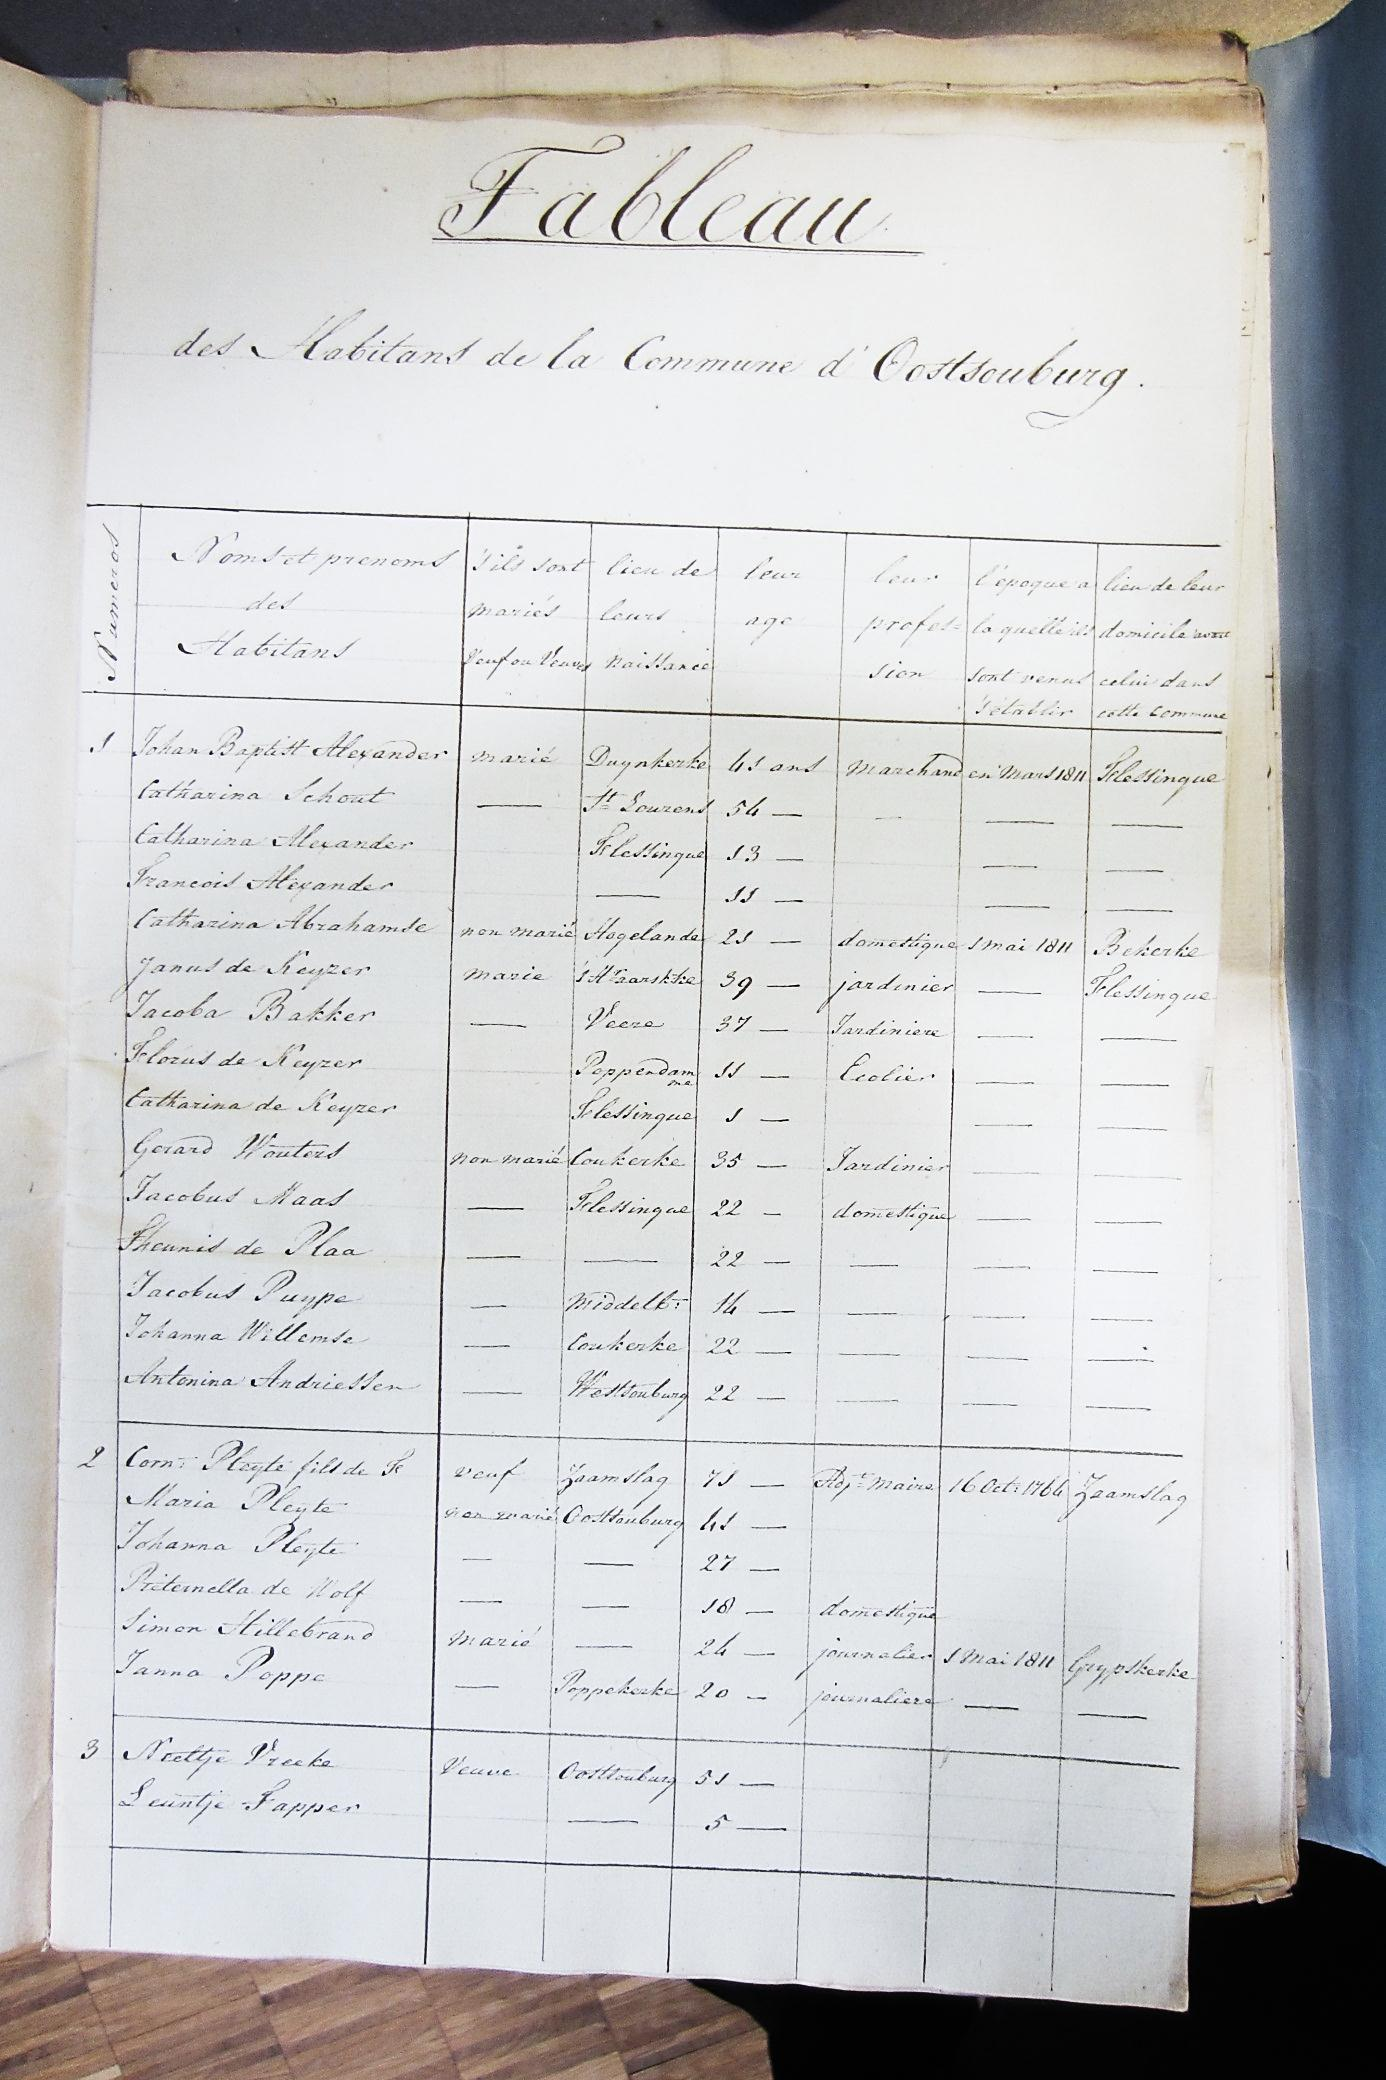 Tableau
des Habitans de la Commune d'Oostsouburg.
Numeros | Noms et prenoms des Habitans | s'ils sont mariés Veuf ou Veuves | lieu de leurs naissance | leur age | leur profes=sion | l'époque a laquelle ils sont venus s'établir | lieu de leur domicile avant celui dans cette Commune
1 Johan Baptist Alexander marié Duynkerke 41 ans marchand en Mars 1811 Flessingue
Catharina Schout — St Lourens 54 — — — —
Catharina Alexander Flessingue 13 — — —
Francois Alexander — 11 — — —
Catharina Abrahamse non marié Hogelande 21 — domestique 1 mai 1811 Bekerke
Janus de Keyzer marie 39 — jardinier — Flessingue
Jacoba Bakker — Veere 37 — Jardiniere — —
Florus de Keyzer Poppendamme 11 — Ecolier — —
Catharina de Keyzer Flessingue 1 — — —
Gerard Wouters non marié Coukerke 35 — Jardinier — —
Jacobus Maas — Flessingue 22 — domestique — —
Theunis de Plaa — — 22 — — — —
Jacobus Puype — Middelb: 14 — — — —
Johanna Willemse — Coukerke 22 — — — —
Antonina Andriessen — Westsouburg 22 — — — —
2 Corn: Pleyte fils de F veuf Zaamslag 71 — Adjt Maire 16 Oct: 1766 Zaamslag
Maria Pleyte non marié Oostsouburg 41 —
Johanna Pleyte — — 27 —
Pieternella de Wolf — — 18 — domestique
Simon Hillebrand marié — 24 — journalier 1 Mai 1811 Grypskerke
Janna Poppe — Poppekerke 20 — journaliere — —
3 Neeltje Vreeke Veuve Oostsouburg 51 —
Leuntje Tapper — 5 —